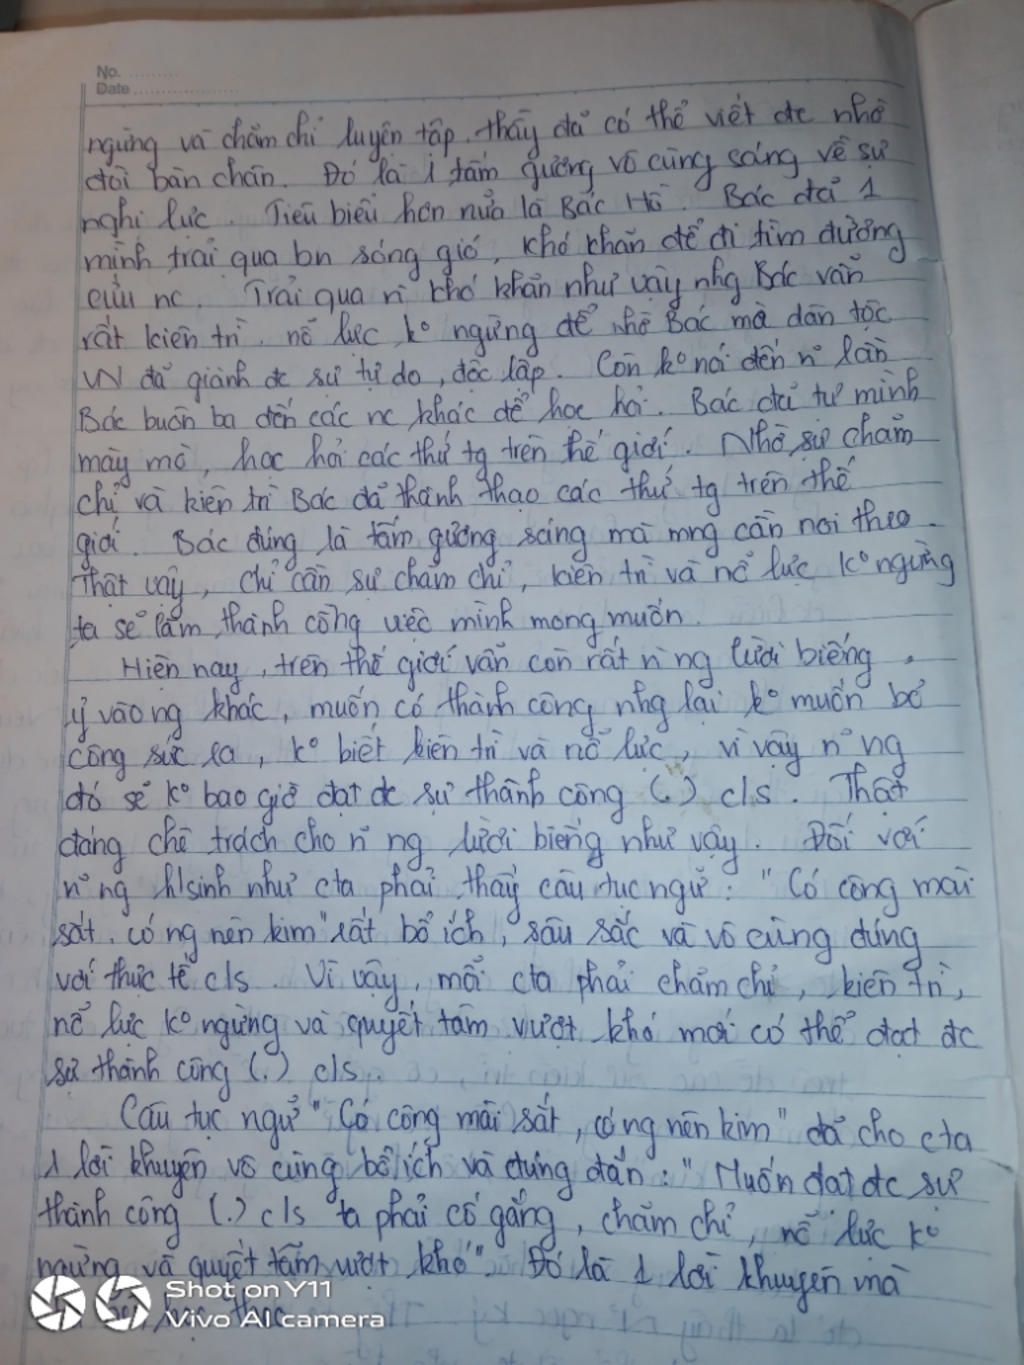 No. ..........
Date ....................
ngừng và chăm chỉ luyện tập. thầy đã có thể viết đc nhờ
đôi bàn chân. Đó là 1 tấm gương vô cùng sáng về sự
nghị lực. Tiêu biểu hơn nữa là Bác Hồ. Bác đã 1
mình trải qua bn sóng gió, khó khăn để đi tìm đường
cứu nc. Trải qua n~ khó khăn như vậy nhg Bác vẫn
rất kiên trì, nỗ lực ko ngừng để nhờ Bác mà dân tộc
VN đã giành đc sự tự do, độc lập. Còn ko nói đến n~ lần
Bác buôn ba đến các nc khác để học hỏi. Bác đã tự mình
mày mò, học hỏi các thứ tg trên thế giới. Nhờ sự chăm
chỉ và kiên trì Bác đã thành thạo các thứ tg trên thế
giới. Bác đúng là tấm gương sáng mà mng cần noi theo.
Thật vậy, chỉ cần sự chăm chỉ, kiên trì và nỗ lực ko ngừng
ta sẽ làm thành công việc mình mong muốn.
Hiện nay, trên thế giới vẫn còn rất n` ng lười biếng,
ỷ vào ng khác, muốn có thành công nhg lại ko muốn bỏ
công sức ra, ko biết kiên trì và nỗ lực, vì vậy n~ ng
đó sẽ ko bao giờ đạt đc sự thành công (.) c/s. Thật
đáng chê trách cho n~ ng lười biếng như vậy. Đối với
n~ ng h/sinh như cta phải thấy câu tục ngữ: "Có công mài
sắt, có ng nên kim" rất bổ ích, sâu sắc và vô cùng đúng
với thực tế c/s. Vì vậy, mỗi cta phải chăm chỉ, kiên trì,
nỗ lực ko ngừng và quyết tâm vượt khó mới có thể đạt đc
sự thành công (.) c/s.
Câu tục ngữ "Có công mài sắt, có ng nên kim" đã cho cta
1 lời khuyên vô cùng bổ ích và đúng đắn: "Muốn đạt đc sự
thành công (.) c/s ta phải cố gắng, chăm chỉ, nỗ lực ko
ngừng và quyết tâm vượt khó". Đó là 1 lời khuyên mà
Shot on Y11
Vivo AI camera